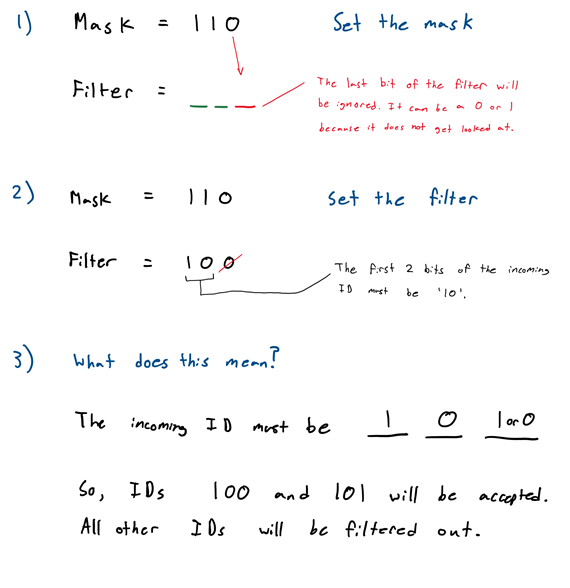 1) Mask = 110 Set the mask
Filter = _ _ _ The last bit of the filter will
be ignored. It can be a 0 or 1
because it does not get looked at.
2) Mask = 110 Set the filter
Filter = 100 The first 2 bits of the incoming
ID must be '10'.
3) What does this mean?
The incoming ID must be 1 0 1 or 0
So, IDs 100 and 101 will be accepted.
All other IDs will be filtered out.